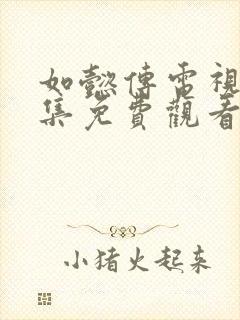 如懿傳電視
集免費觀看
小猪火起来